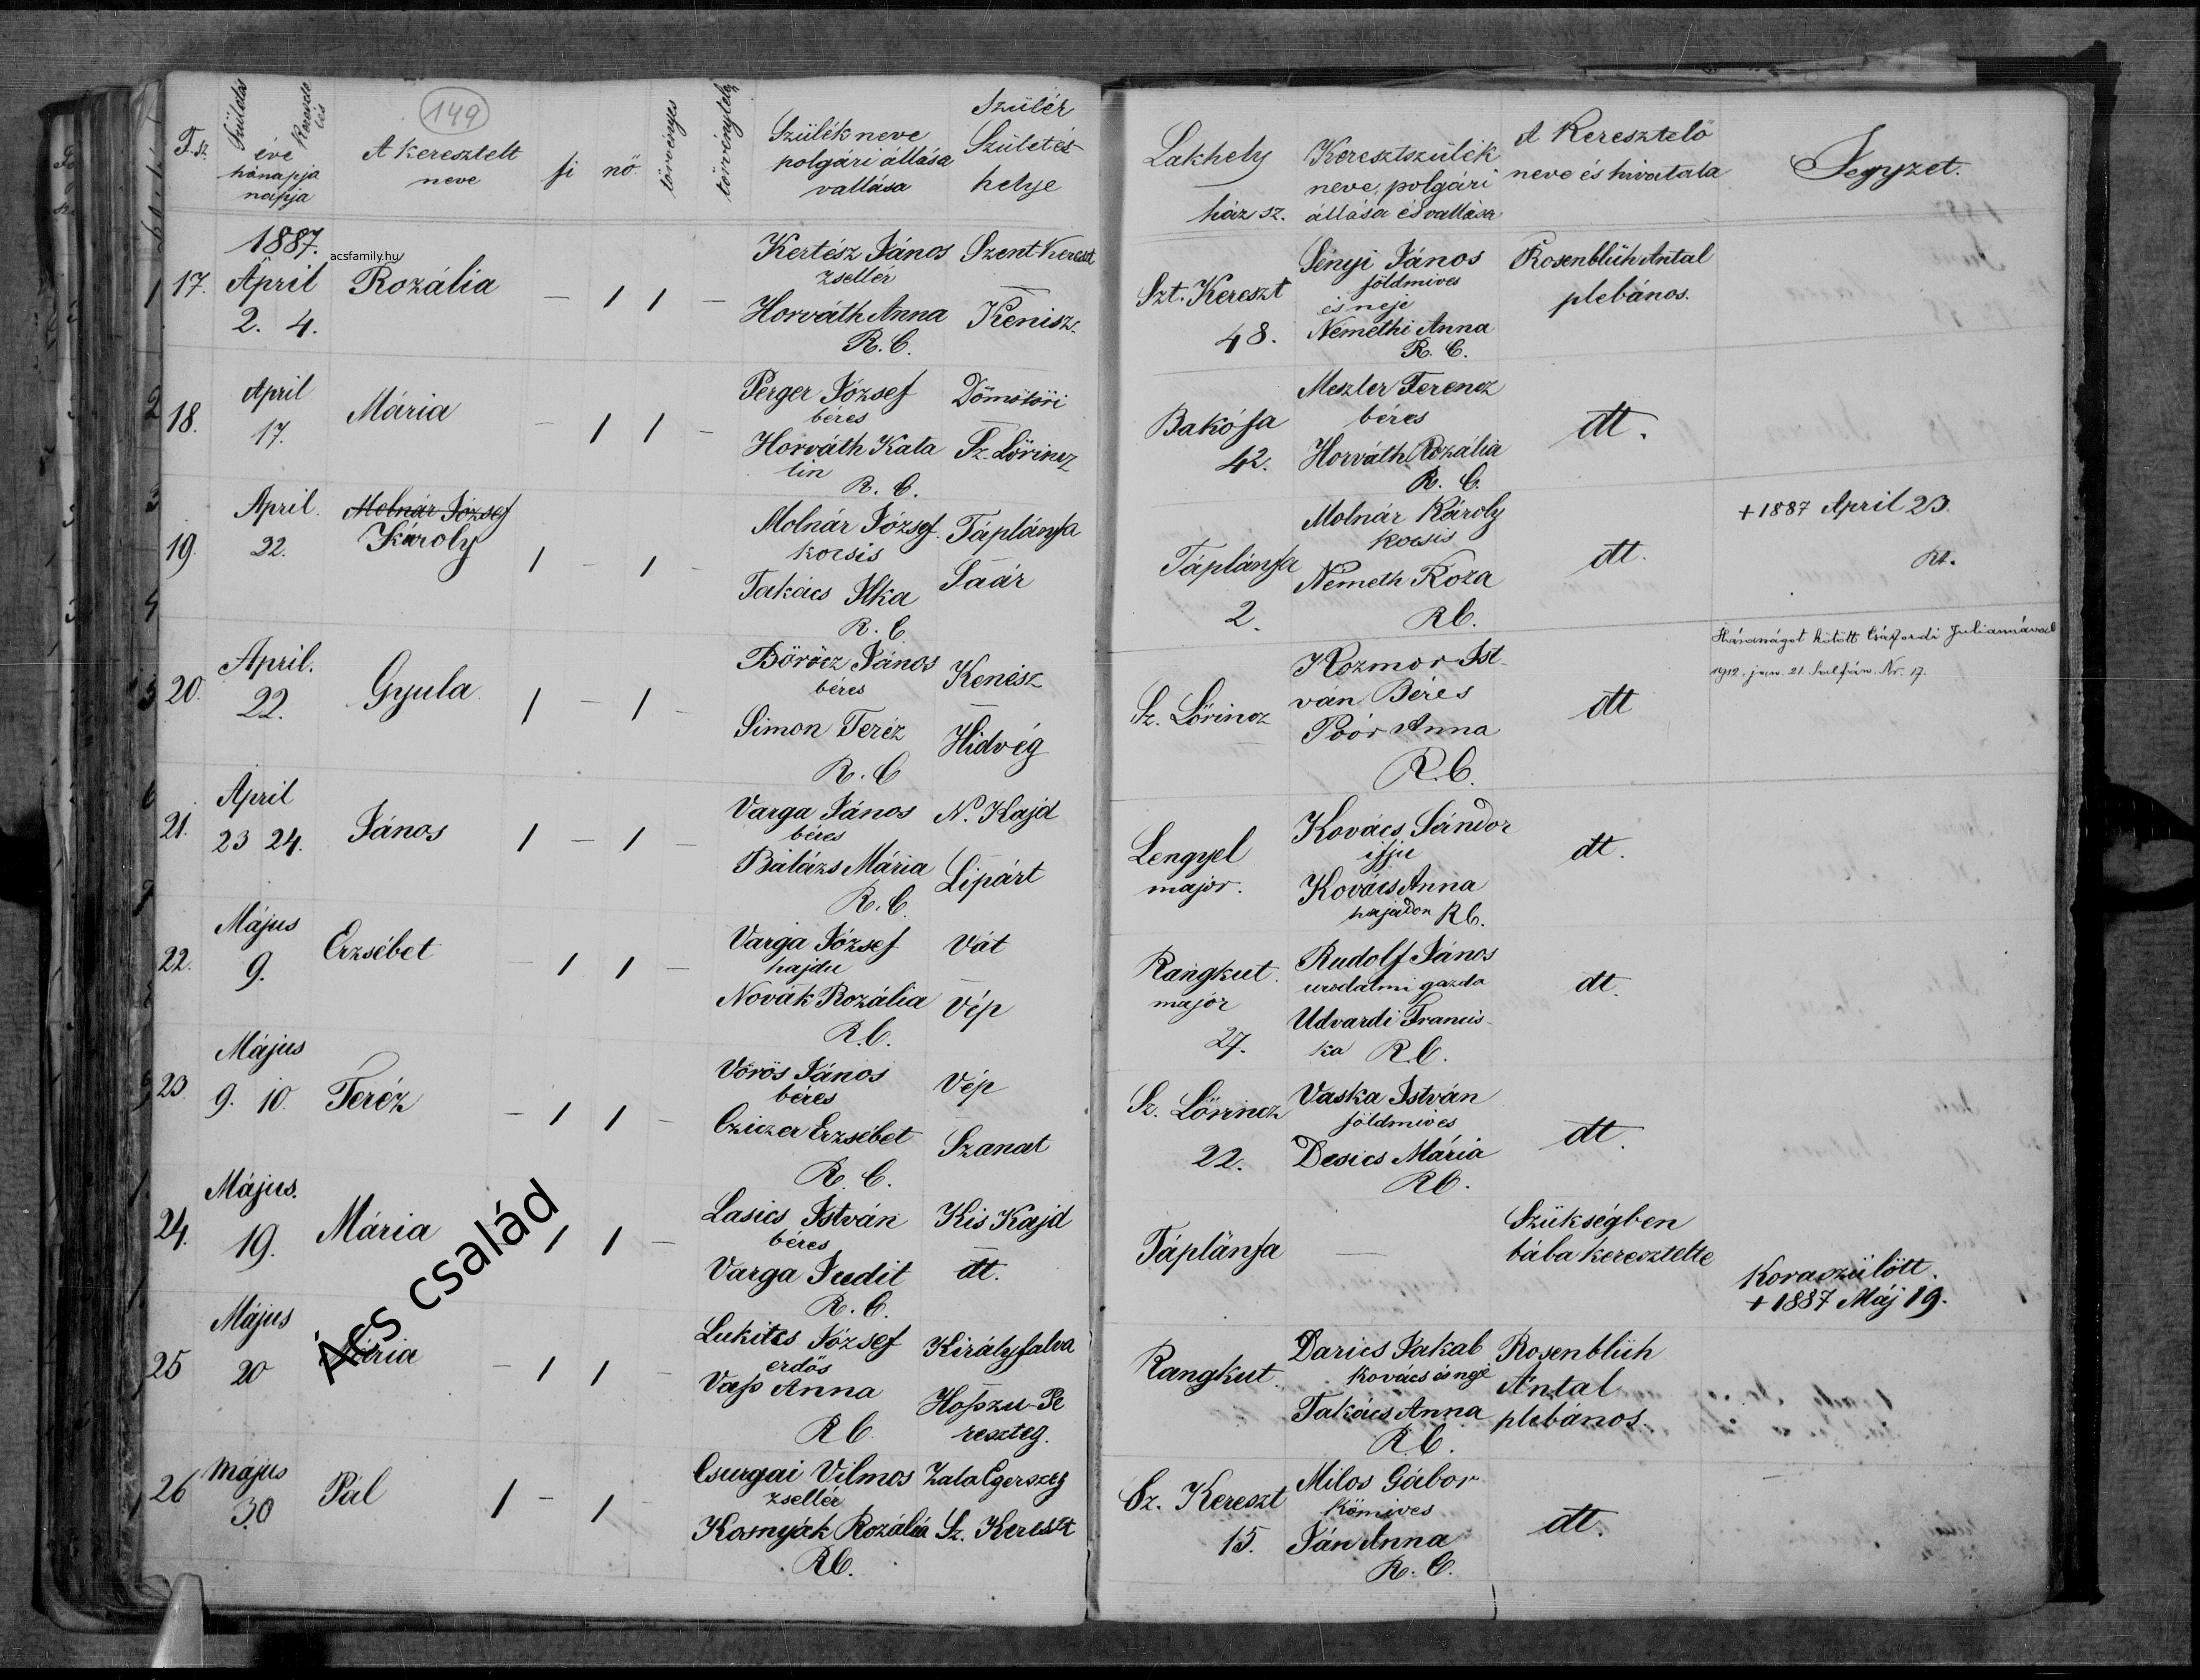 149
F. sz.
Születés
Keresztelés
éve
hónapja
napja
A keresztelt
neve
fi
nő
törvényes
törvénytelen
Szülék neve
polgári állása
vallása
Szülék
Születés
helye
Lakhely
ház sz.
Keresztszülék
neve, polgári
állása és vallása
A Keresztelő
neve és hivatala
Jegyzet.
acsfamily.hu
1887.
17. April Rozália — 1 1 —
2. 4.
Kertész János Szent-Kereszt
zsellér
Horváth Anna Kenisz.
R. C.
Szt. Kereszt
48.
Fényi János
földmives
és neje
Némethi Anna
R. C.
Rosenblüh Antal
plebános.
18. April Mária — 1 1 —
17.
Perger József Dömötöri
béres
Horváth Kata Sz. Lőrincz
lin
R. C.
Bakófa
42.
Meszler Ferencz
béres
Horváth Rozália
R. C.
dt.
19. April. Molnár József
22. Károly 1 — 1 —
Molnár József Táplánfa
kocsis
Takács Ilka Saár
R. C.
Táplánfa
2.
Molnár Károly
kocsis
Németh Roza
RC.
dt.
+ 1887 April 23.
20. April. Gyula 1 — 1 —
22.
Böröcz János Kenész
béres
Simon Teréz Hidvég
R. C
Sz. Lőrincz
Kozmor Ist-
ván Béres
Poór Anna
R.C.
dt
Házasságot kötött Csáfordi Juliannával
1912. jan. 21. Nr. 17.
21. April János 1 — 1 —
23 24.
Varga János N. Kajd
béres
Balázs Mária Lipárt
R. C.
Lengyel
major.
Kovács Sándor
ifju
Kovács Anna
hajadon RC.
dt.
22. Május Erzsébet — 1 1 —
9.
Varga József Vát
hajdu
Novák Rozália Vép
R.C.
Rangkut
major
27.
Rudolf János
uradalmi gazda
Udvardi Francis-
ka R.C.
dt.
23. Május Teréz — 1 1 —
9. 10.
Vörös János Vép
béres
Cziczer Erzsébet Szanat
R. C.
Sz. Lőrincz
22.
Vaska István
földmives
Desics Mária
RC.
dt.
24. Május. Mária 1 1 —
19.
Lasics István Kis Kajd
béres
Varga Judit dt.
R. C.
Táplánfa
—
Szükségben
bába keresztelte
Koraszülött.
+ 1887 Máj 19.
25 Május Mária — 1 1 —
20
Lukitcs József Királyfalva
erdős
Vass Anna Hosszu-Pe
RC. reszteg.
Rangkut.
Darics Jakab
kovács és neje
Takács Anna
R.C.
Rosenblüh
Antal
plebános.
26 Május Pál 1 — 1 —
30
Csurgai Vilmos Zala Egerszeg
zsellér
Kosnyák Rozália Sz. Kereszt
RC.
Sz. Kereszt
15.
Milos Gábor
Kőmives
Ján Anna
R. C.
dt.
Ács család